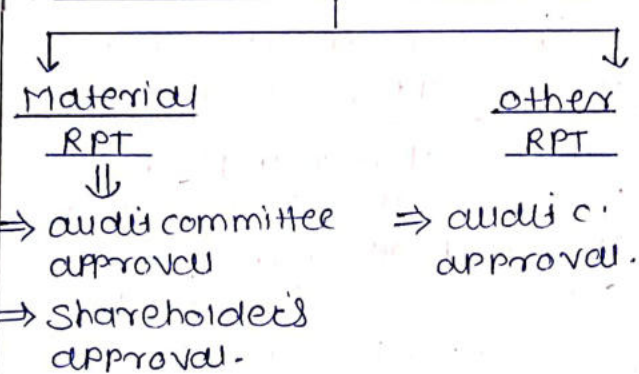 Material
RPT
⇒ audit committee
approval
⇒ Shareholder's
approval.
other
RPT
⇒ audit c.
approval.